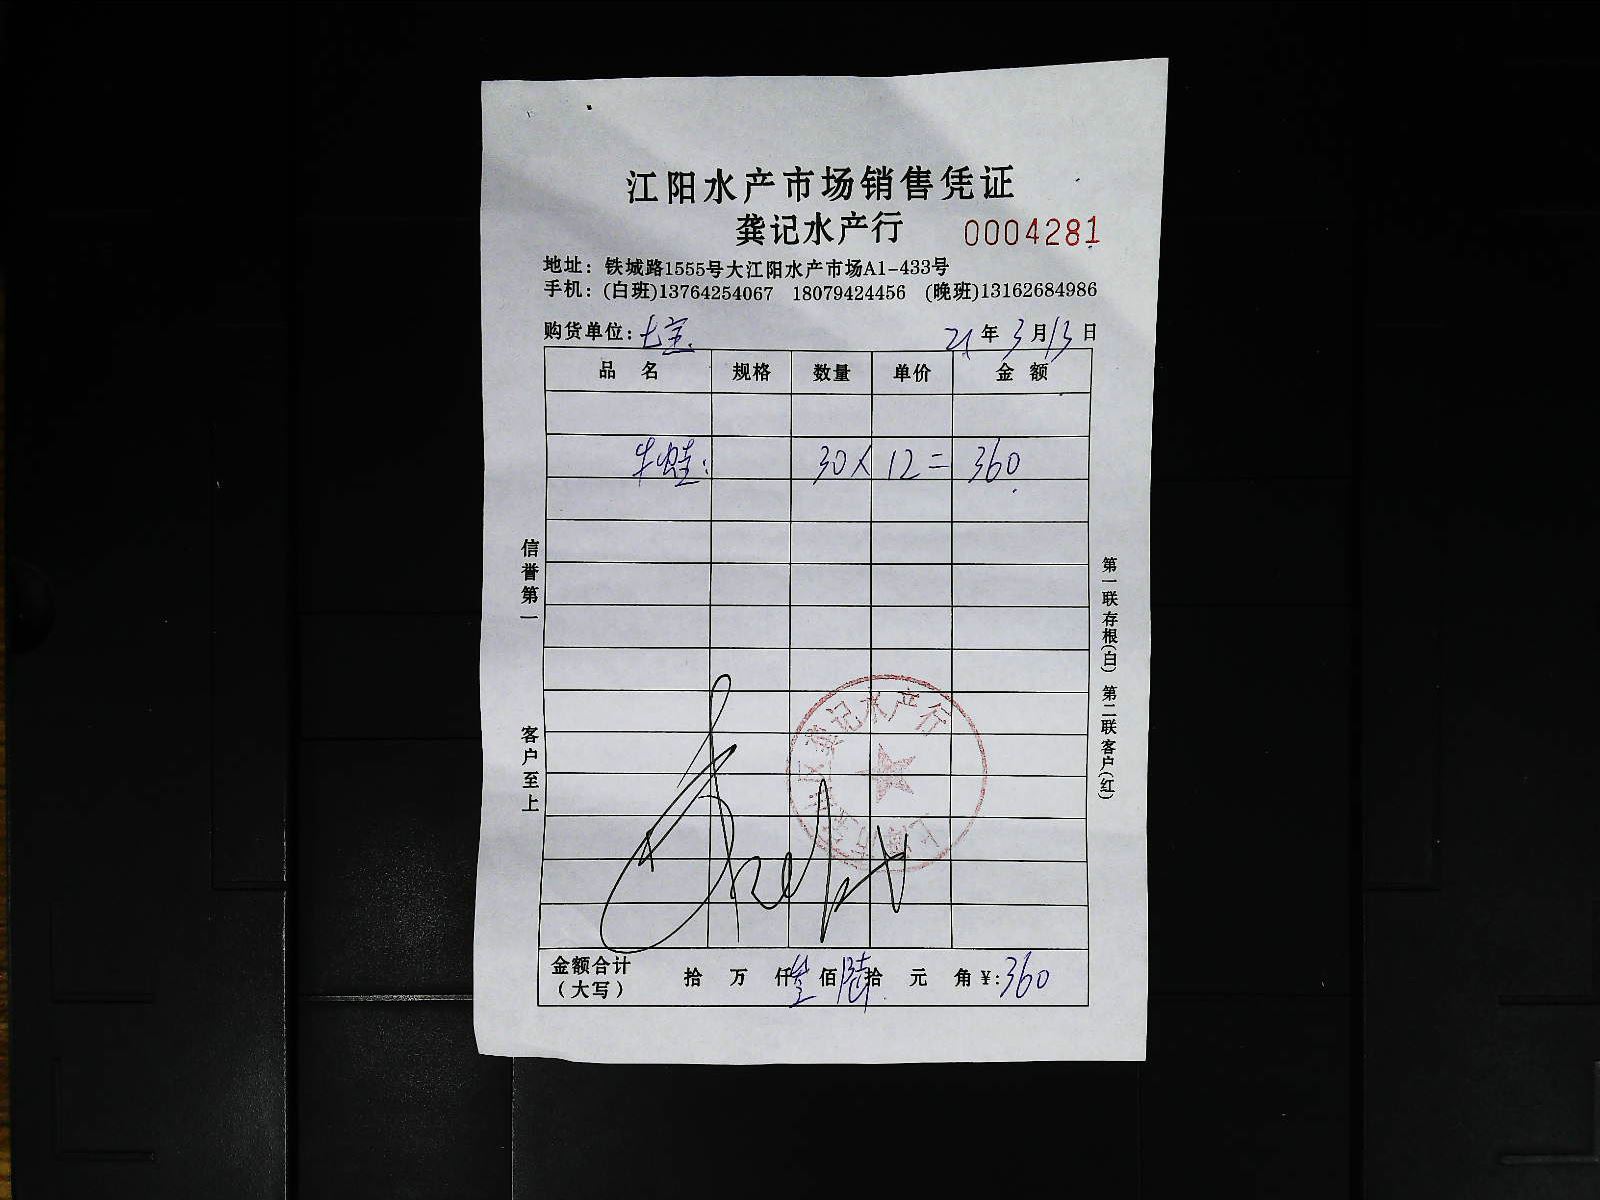 江阳水产市场销售凭证
龚记水产行 0004281
地址：铁城路1555号大江阳水产市场A1-433号
手机：(白班)13764254067 18079424456 (晚班)13162684986
购货单位：七宝 21年3月13日
品名 规格 数量 单价 金额
牛蛙： 30× 12= 360
信誉第一
客户至上
第一联存根(白) 第二联客户(红)
龚记水产行
金额合计 拾 万 仟叁佰陆拾 元 角 ¥:360
（大写）